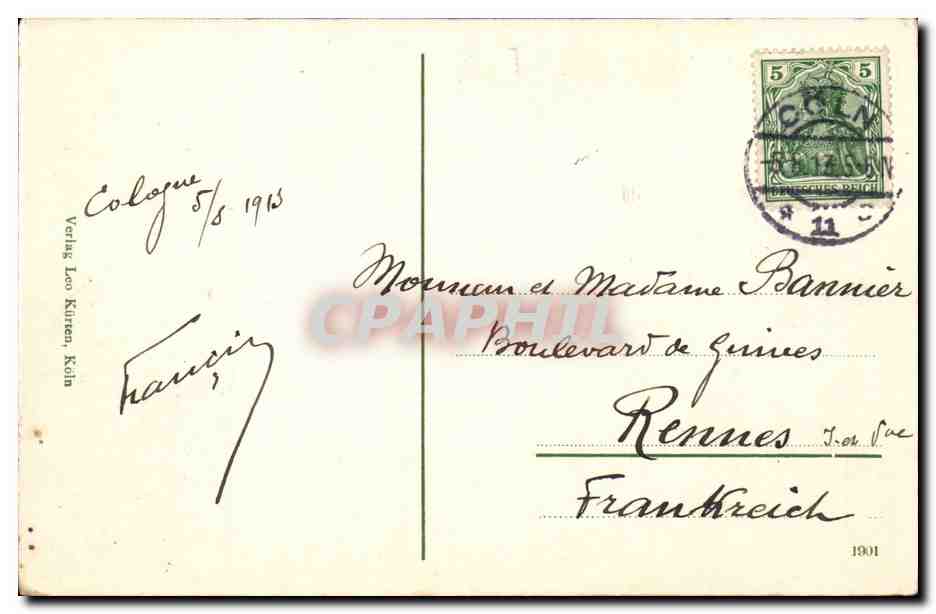 5 5
CÖLN
DEUTSCHES REICH
11
Cologne 5/8 1913
Verlag Leo Kürten, Köln
Francis
Monsieur et Madame Bannier
CPAPHIL
Boulevard de Guines
Rennes I. et Vne
Frankreich
1901